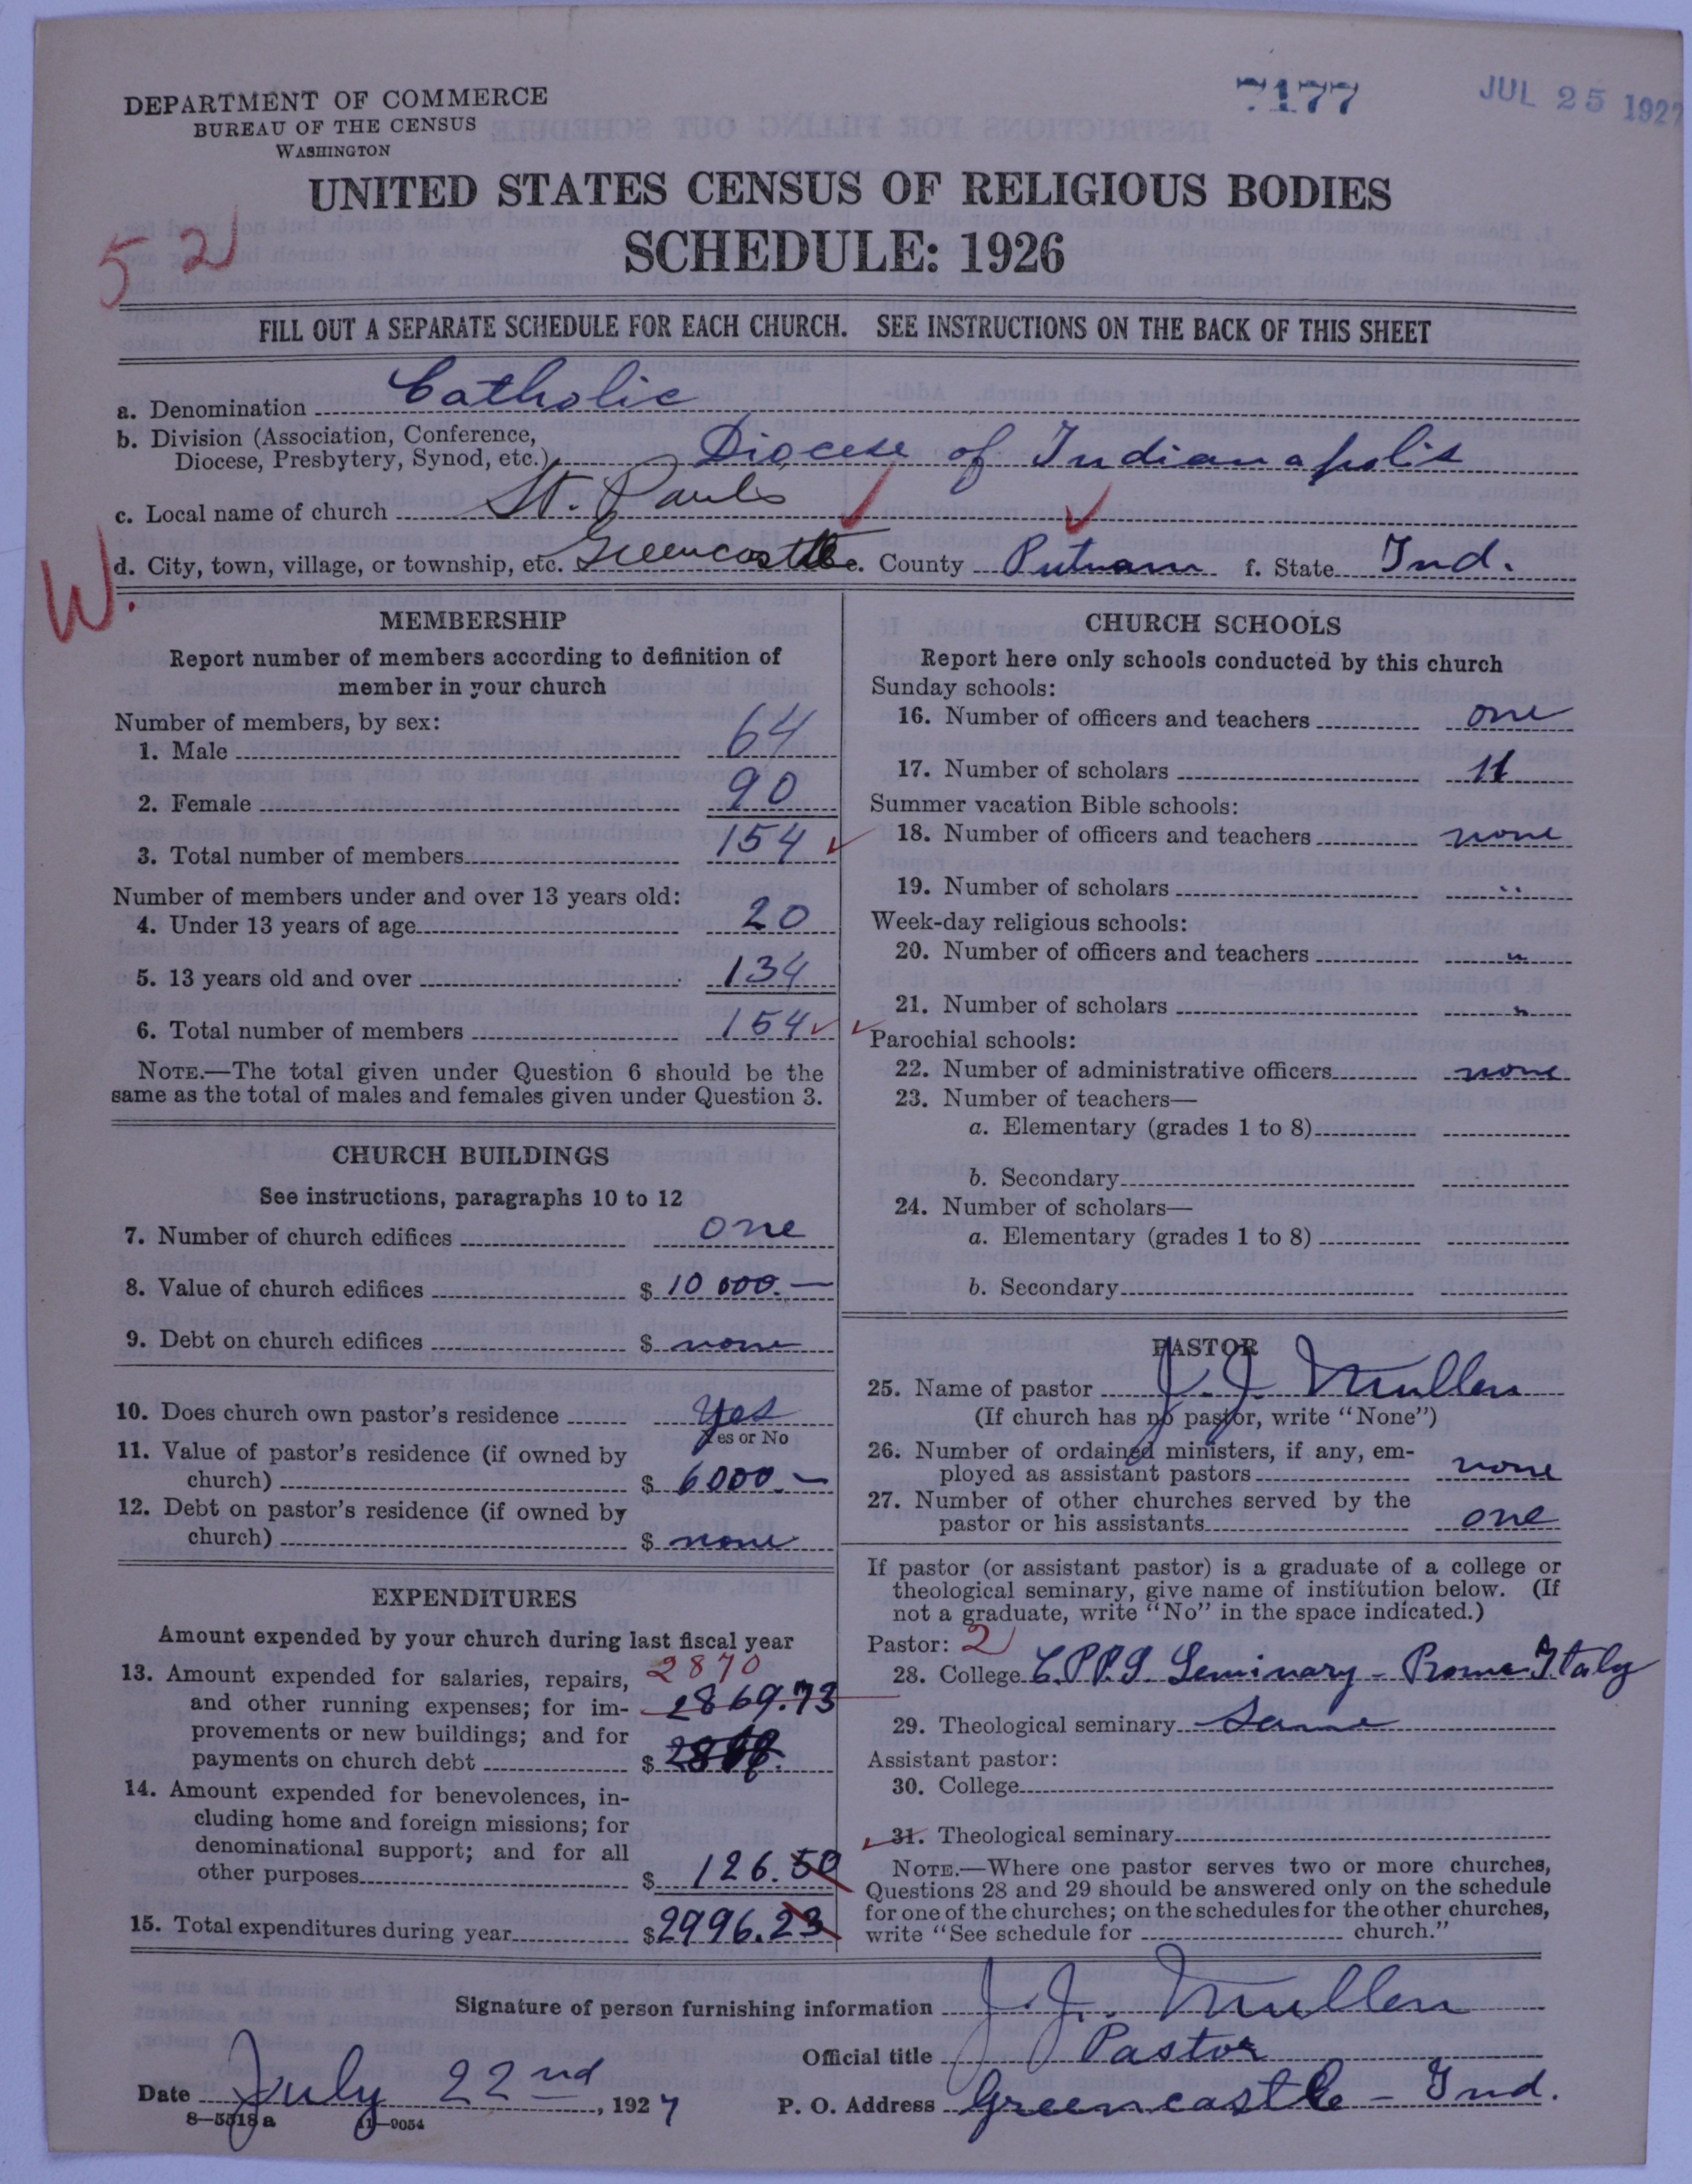 DEPARTMENT OF COMMERCE
BUREAU OF THE CENSUS
WASHINGTON
7177
JUL 25 1927
UNITED STATES CENSUS OF RELIGIOUS BODIES
SCHEDULE: 1926
52
FILL OUT A SEPARATE SCHEDULE FOR EACH CHURCH. SEE INSTRUCTIONS ON THE BACK OF THIS SHEET
a. Denomination Catholic
b. Division (Association, Conference,
Diocese, Presbytery, Synod, etc.) Diocese of Indianapolis
c. Local name of church St. Pauls
W.
d. City, town, village, or township, etc. Greencastle e. County Putnam f. State Ind.
MEMBERSHIP
Report number of members according to definition of
member in your church
Number of members, by sex:
1. Male 64
2. Female 90
3. Total number of members 154
Number of members under and over 13 years old:
4. Under 13 years of age 20
5. 13 years old and over 134
6. Total number of members 154
NOTE.—The total given under Question 6 should be the
same as the total of males and females given under Question 3.
CHURCH BUILDINGS
See instructions, paragraphs 10 to 12
7. Number of church edifices one
8. Value of church edifices $ 10 000.—
9. Debt on church edifices $ none
10. Does church own pastor's residence Yes
Yes or No
11. Value of pastor's residence (if owned by
church) $ 6000.—
12. Debt on pastor's residence (if owned by
church) $ none
EXPENDITURES
Amount expended by your church during last fiscal year
13. Amount expended for salaries, repairs, 2870
and other running expenses; for im- 2869.73
provements or new buildings; and for
payments on church debt $
14. Amount expended for benevolences, in-
cluding home and foreign missions; for
denominational support; and for all
other purposes $ 126.50
15. Total expenditures during year $2996.23
CHURCH SCHOOLS
Report here only schools conducted by this church
Sunday schools:
16. Number of officers and teachers one
17. Number of scholars 11
Summer vacation Bible schools:
18. Number of officers and teachers none
19. Number of scholars "
Week-day religious schools:
20. Number of officers and teachers "
21. Number of scholars "
Parochial schools:
22. Number of administrative officers none
23. Number of teachers—
a. Elementary (grades 1 to 8)
b. Secondary
24. Number of scholars—
a. Elementary (grades 1 to 8)
b. Secondary
PASTOR
25. Name of pastor J. J. Mullen
(If church has no pastor, write "None")
26. Number of ordained ministers, if any, em-
ployed as assistant pastors none
27. Number of other churches served by the
pastor or his assistants one
If pastor (or assistant pastor) is a graduate of a college or
theological seminary, give name of institution below. (If
not a graduate, write "No" in the space indicated.)
Pastor: 2
28. College C.PP.S. Seminary - Rome Italy
29. Theological seminary Same
Assistant pastor:
30. College
31. Theological seminary
NOTE.—Where one pastor serves two or more churches,
Questions 28 and 29 should be answered only on the schedule
for one of the churches; on the schedules for the other churches,
write "See schedule for church."
Signature of person furnishing information J. J. Mullen
Official title Pastor
Date July 22nd, 1927 P. O. Address Greencastle - Ind.
8—5518 a 11—9054